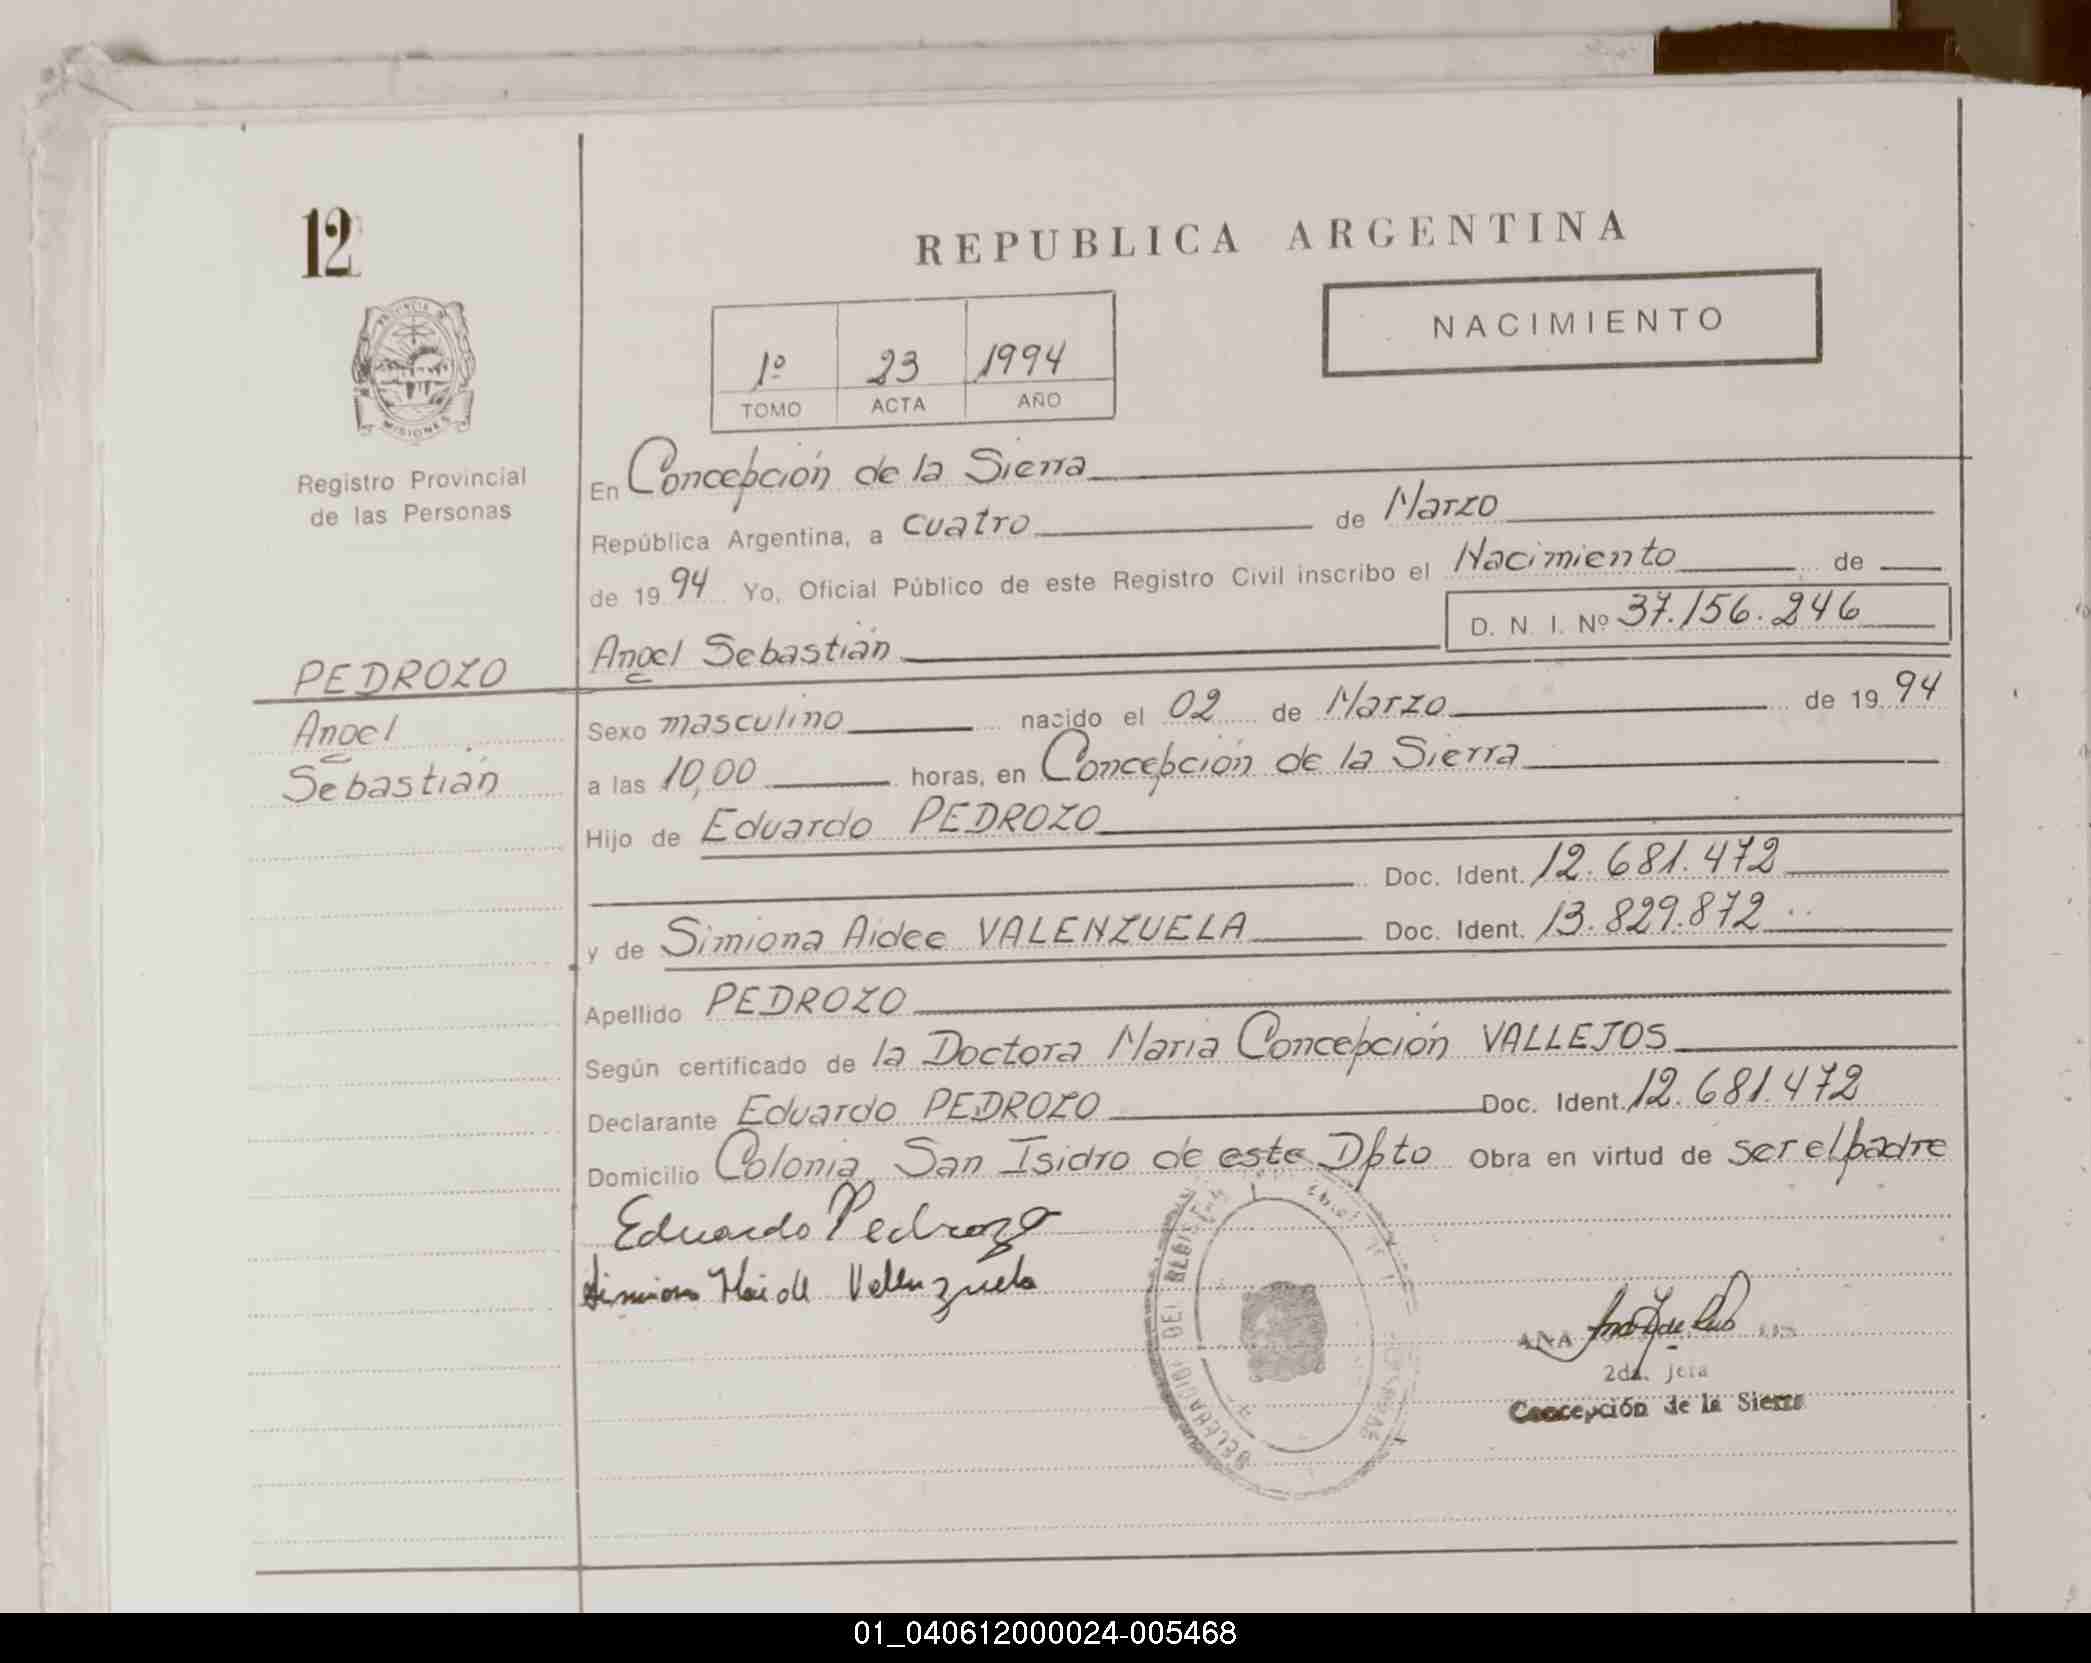 12
REPUBLICA ARGENTINA
NACIMIENTO
1º 23 1994
TOMO ACTA AÑO
PROVINCIA DE
MISIONES
Registro Provincial
de las Personas
En Concepción de la Sierra
República Argentina, a cuatro de Marzo
de 1994 Yo, Oficial Público de este Registro Civil inscribo el Nacimiento de
D. N. I. Nº 37.156.246
Angel Sebastián
PEDROZO
Angel
Sebastián
Sexo masculino nacido el 02 de Marzo de 1994
a las 10,00 horas, en Concepción de la Sierra
Hijo de Eduardo PEDROZO
Doc. Ident. 12.681.472
y de Simiona Aidee VALENZUELA Doc. Ident. 13.829.872
Apellido PEDROZO
Según certificado de la Doctora Maria Concepción VALLEJOS
Declarante Eduardo PEDROZO Doc. Ident. 12.681.472
Domicilio Colonia San Isidro de este Dpto Obra en virtud de ser el padre
Eduardo Pedrozo
Simiona Valenzuela
DEL REGIST
ANA
2da. Jefa
Concepción de la Sierra
01_040612000024-005468